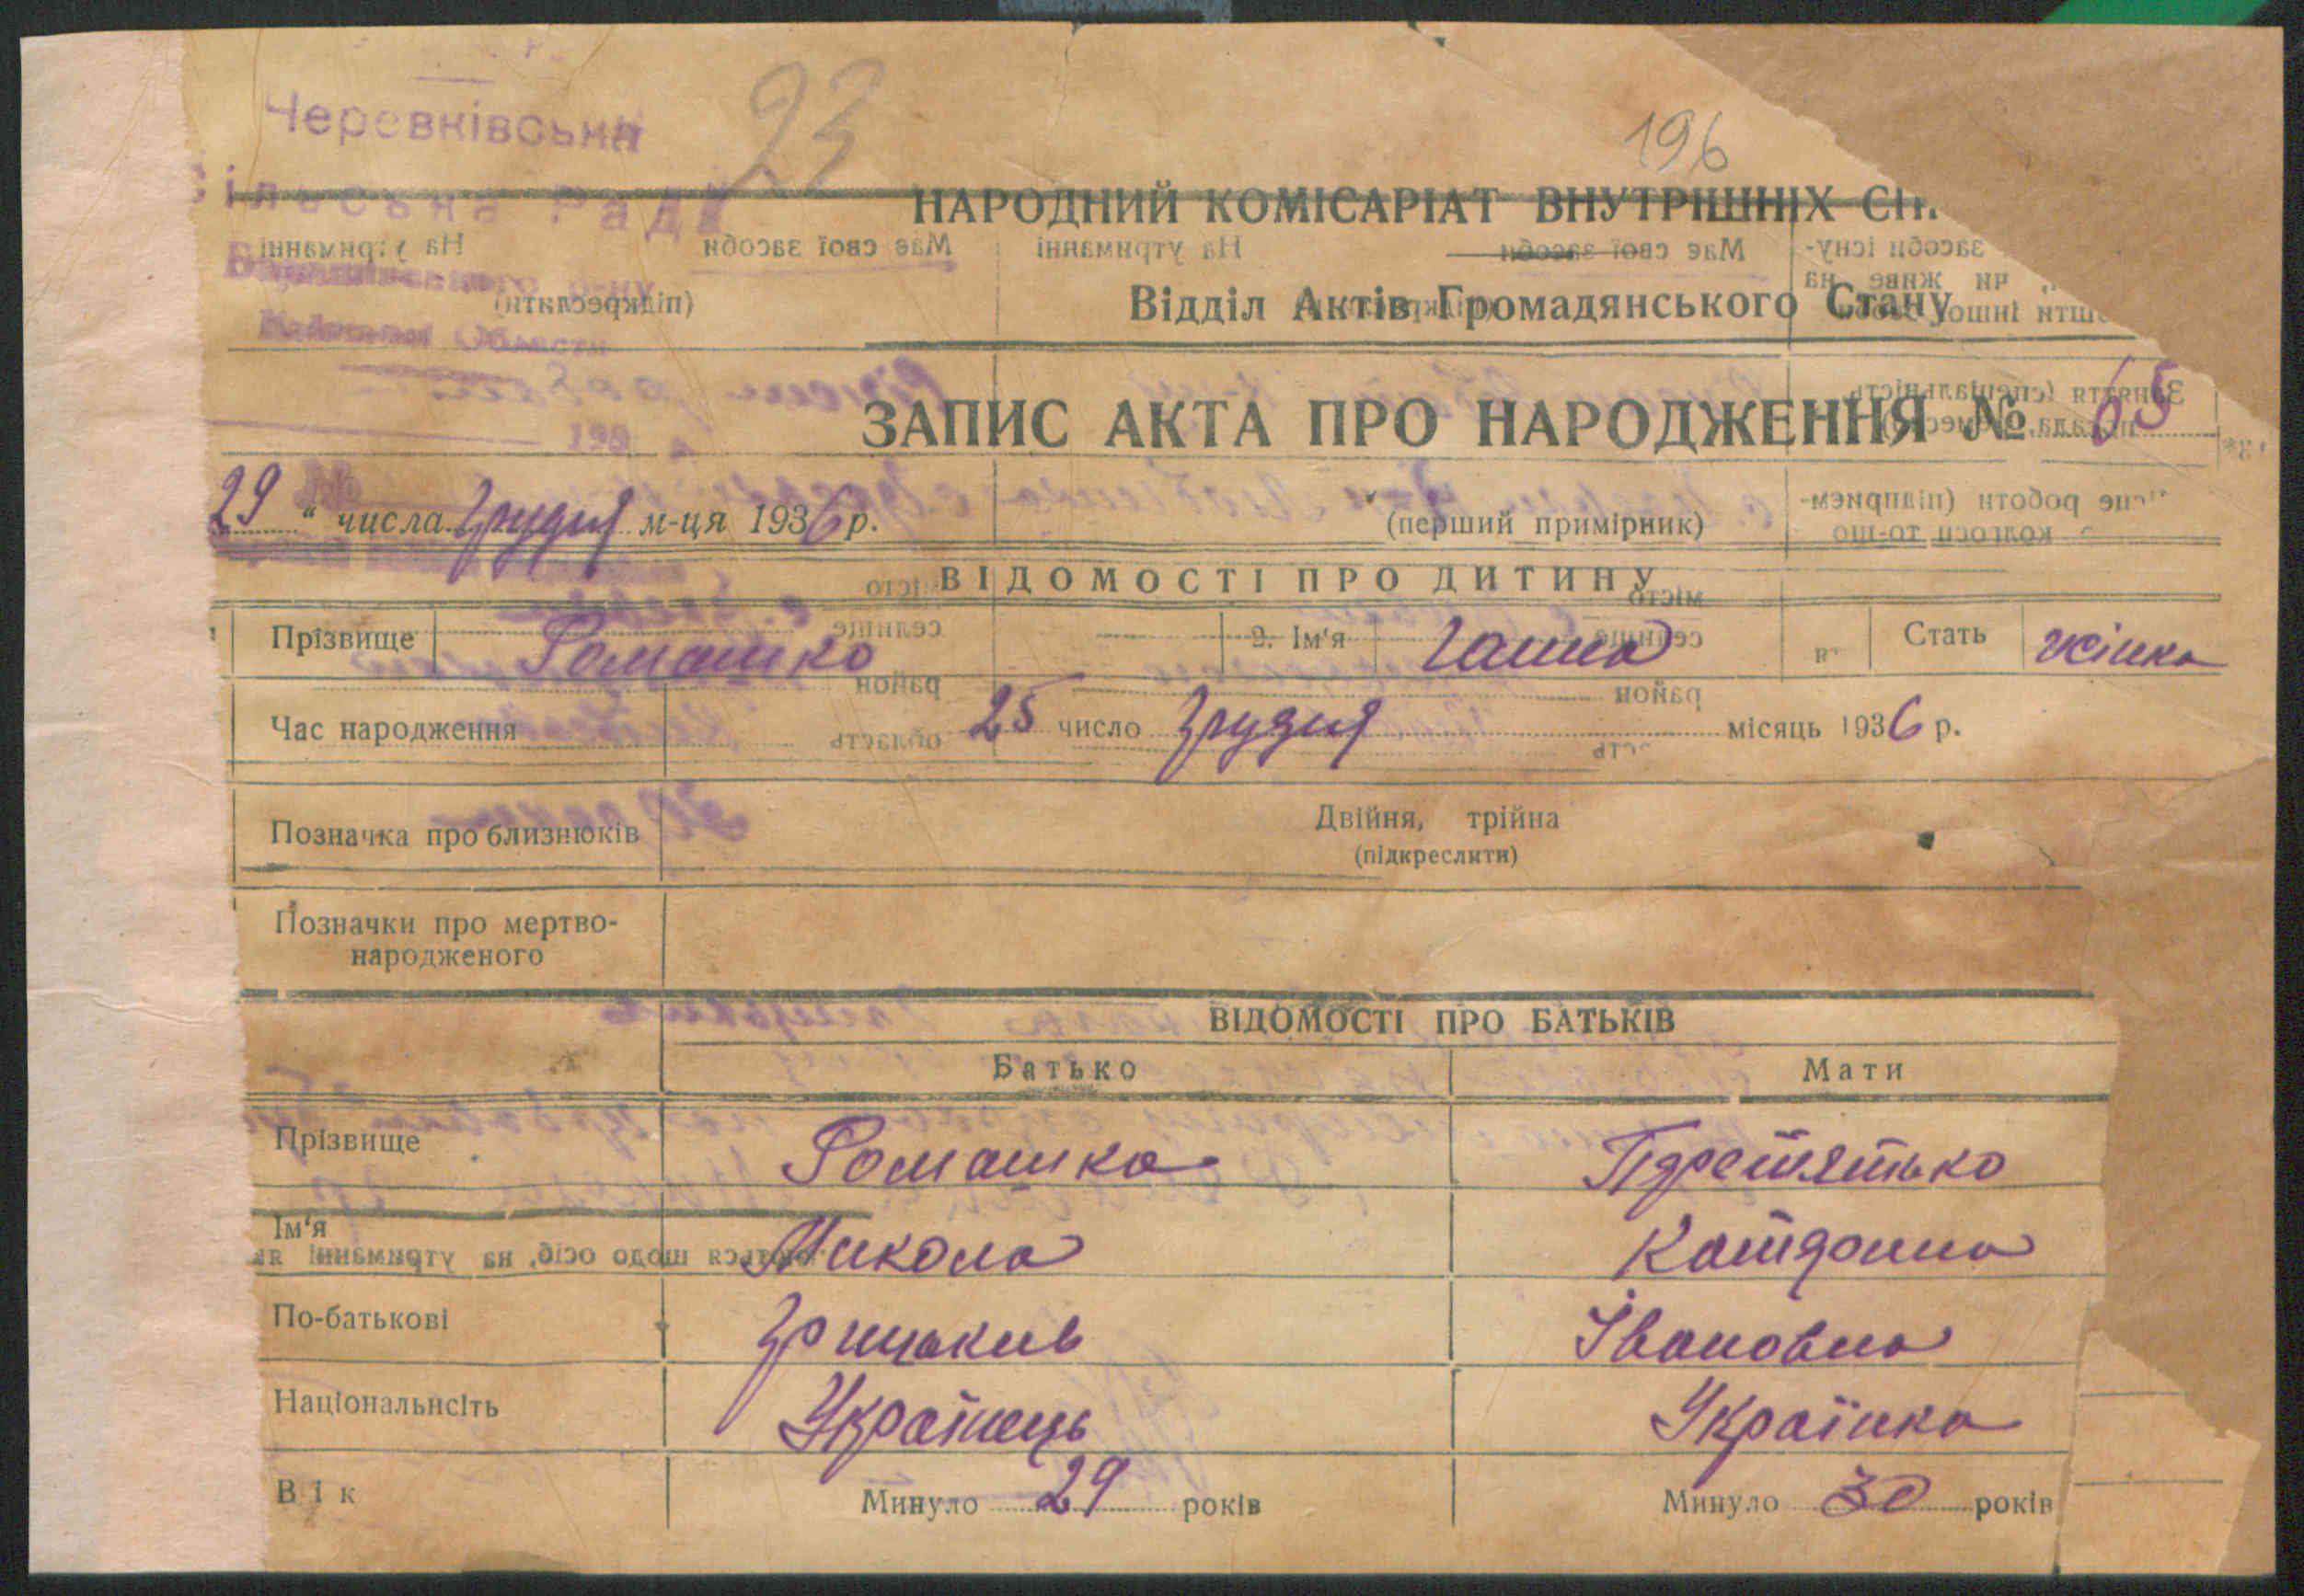 Черевківська
23
196
сільська Рада
НАРОДНИЙ КОМІСАРІАТ ВНУТРІШНІХ СП
р-ну
Області
Відділ Актів Громадянського Стану
ЗАПИС АКТА ПРО НАРОДЖЕННЯ № 65
29 " числа грудня м-ця 1936 р.
(перший примірник)
ВІДОМОСТІ ПРО ДИТИНУ
Прізвище Ромашко 2. Ім'я Ганна Стать жінка
Час народження 25 число грудня місяць 1936 р.
Позначка про близнюків Двійня, трійна
(підкреслити)
Позначки про мертво-
народженого
ВІДОМОСТІ ПРО БАТЬКІВ
Батько Мати
Прізвище Ромашко
Ім'я Микола
По-батькові Грицькив Івановна
Національнсіть Українець Українка
Вік Минуло 29 років Минуло 30 років